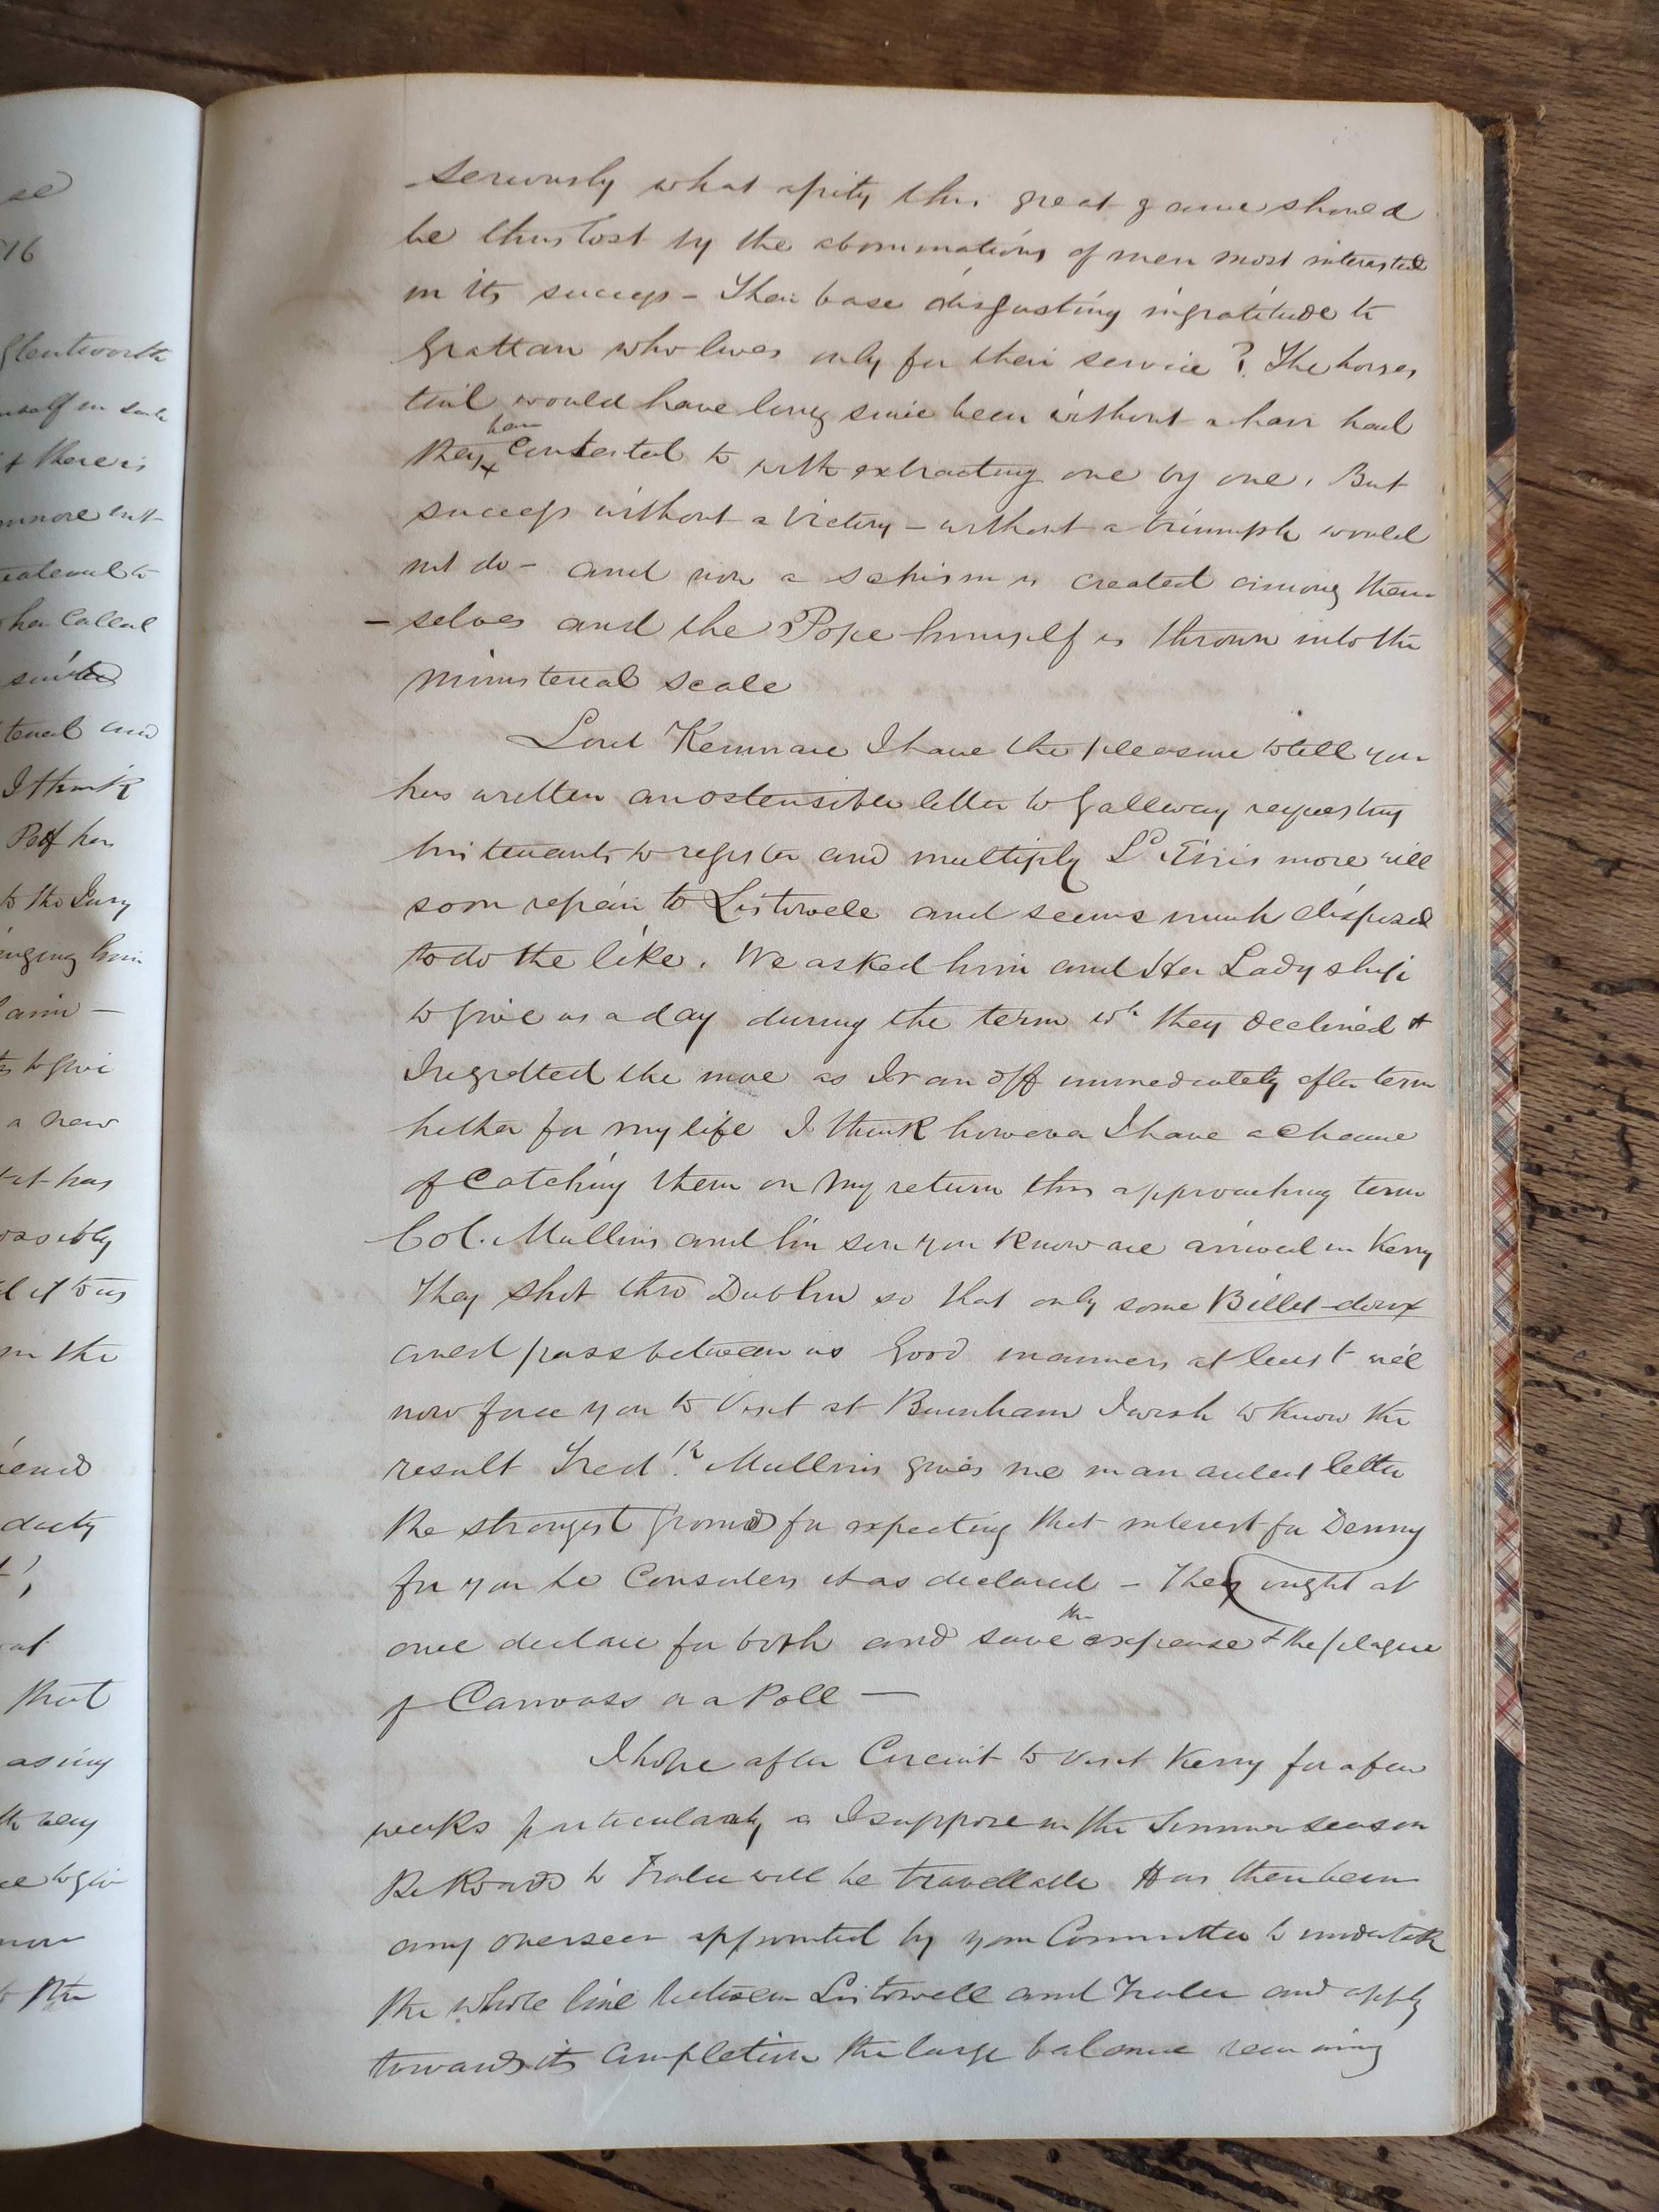 se
16
Glentworth
there is
has Called
I think
has
to the Jury
to give
a new
has
possibly
it to us
in the
that
as my
very
to give
now
the
seriously what a pity this great game should
be thus lost by the abominations of men most interested
in its success - Their base disgusting ingratitude to
Grattan who lives only for their service ? The horses
tail would have long since been without a hair had
they contented to with extracting one by one. But
success without a victory - without a triumph would
not do - and now a schism is created among them
- selves and the Pope himself is thrown into the
ministerial scale
Lord Kenmare I have the pleasure to tell you
has written an ostensible letter to Galleway requesting
his tenants to register and multiply Ld Ennismore will
soon repair to Listowell and seems much disposed
to do the like. We asked him and Her Ladyship
to give us a day during the term wh they declined &
I regretted the more as I ran off immediately after term
hether for my life I think however I have a chance
of Catching them on my return this approaching term
Col. Mullins and his son you know are arrived in Kerry
They shot thro Dublin so that only some Billet-doux
could pass between us Good manners at least will
now force you to visit at Burnham I wish to know the
result Fredk Mullins gives me in an ardent letter
the strongest ground for expecting that interest for Denny
for you he Considers it as declared - They ought at
once declare for both and save the expense & the plague
of Canvass or a Poll —
I hope after Circuit to visit Kerry for a few
weeks particularly as I suppose in the Summer season
the Roads to Tralee will be travellable Has there been
any overseer appointed by your Committee to undertake
the whole line between Listowell and Tralee and apply
towards its Completion the large balance remaining